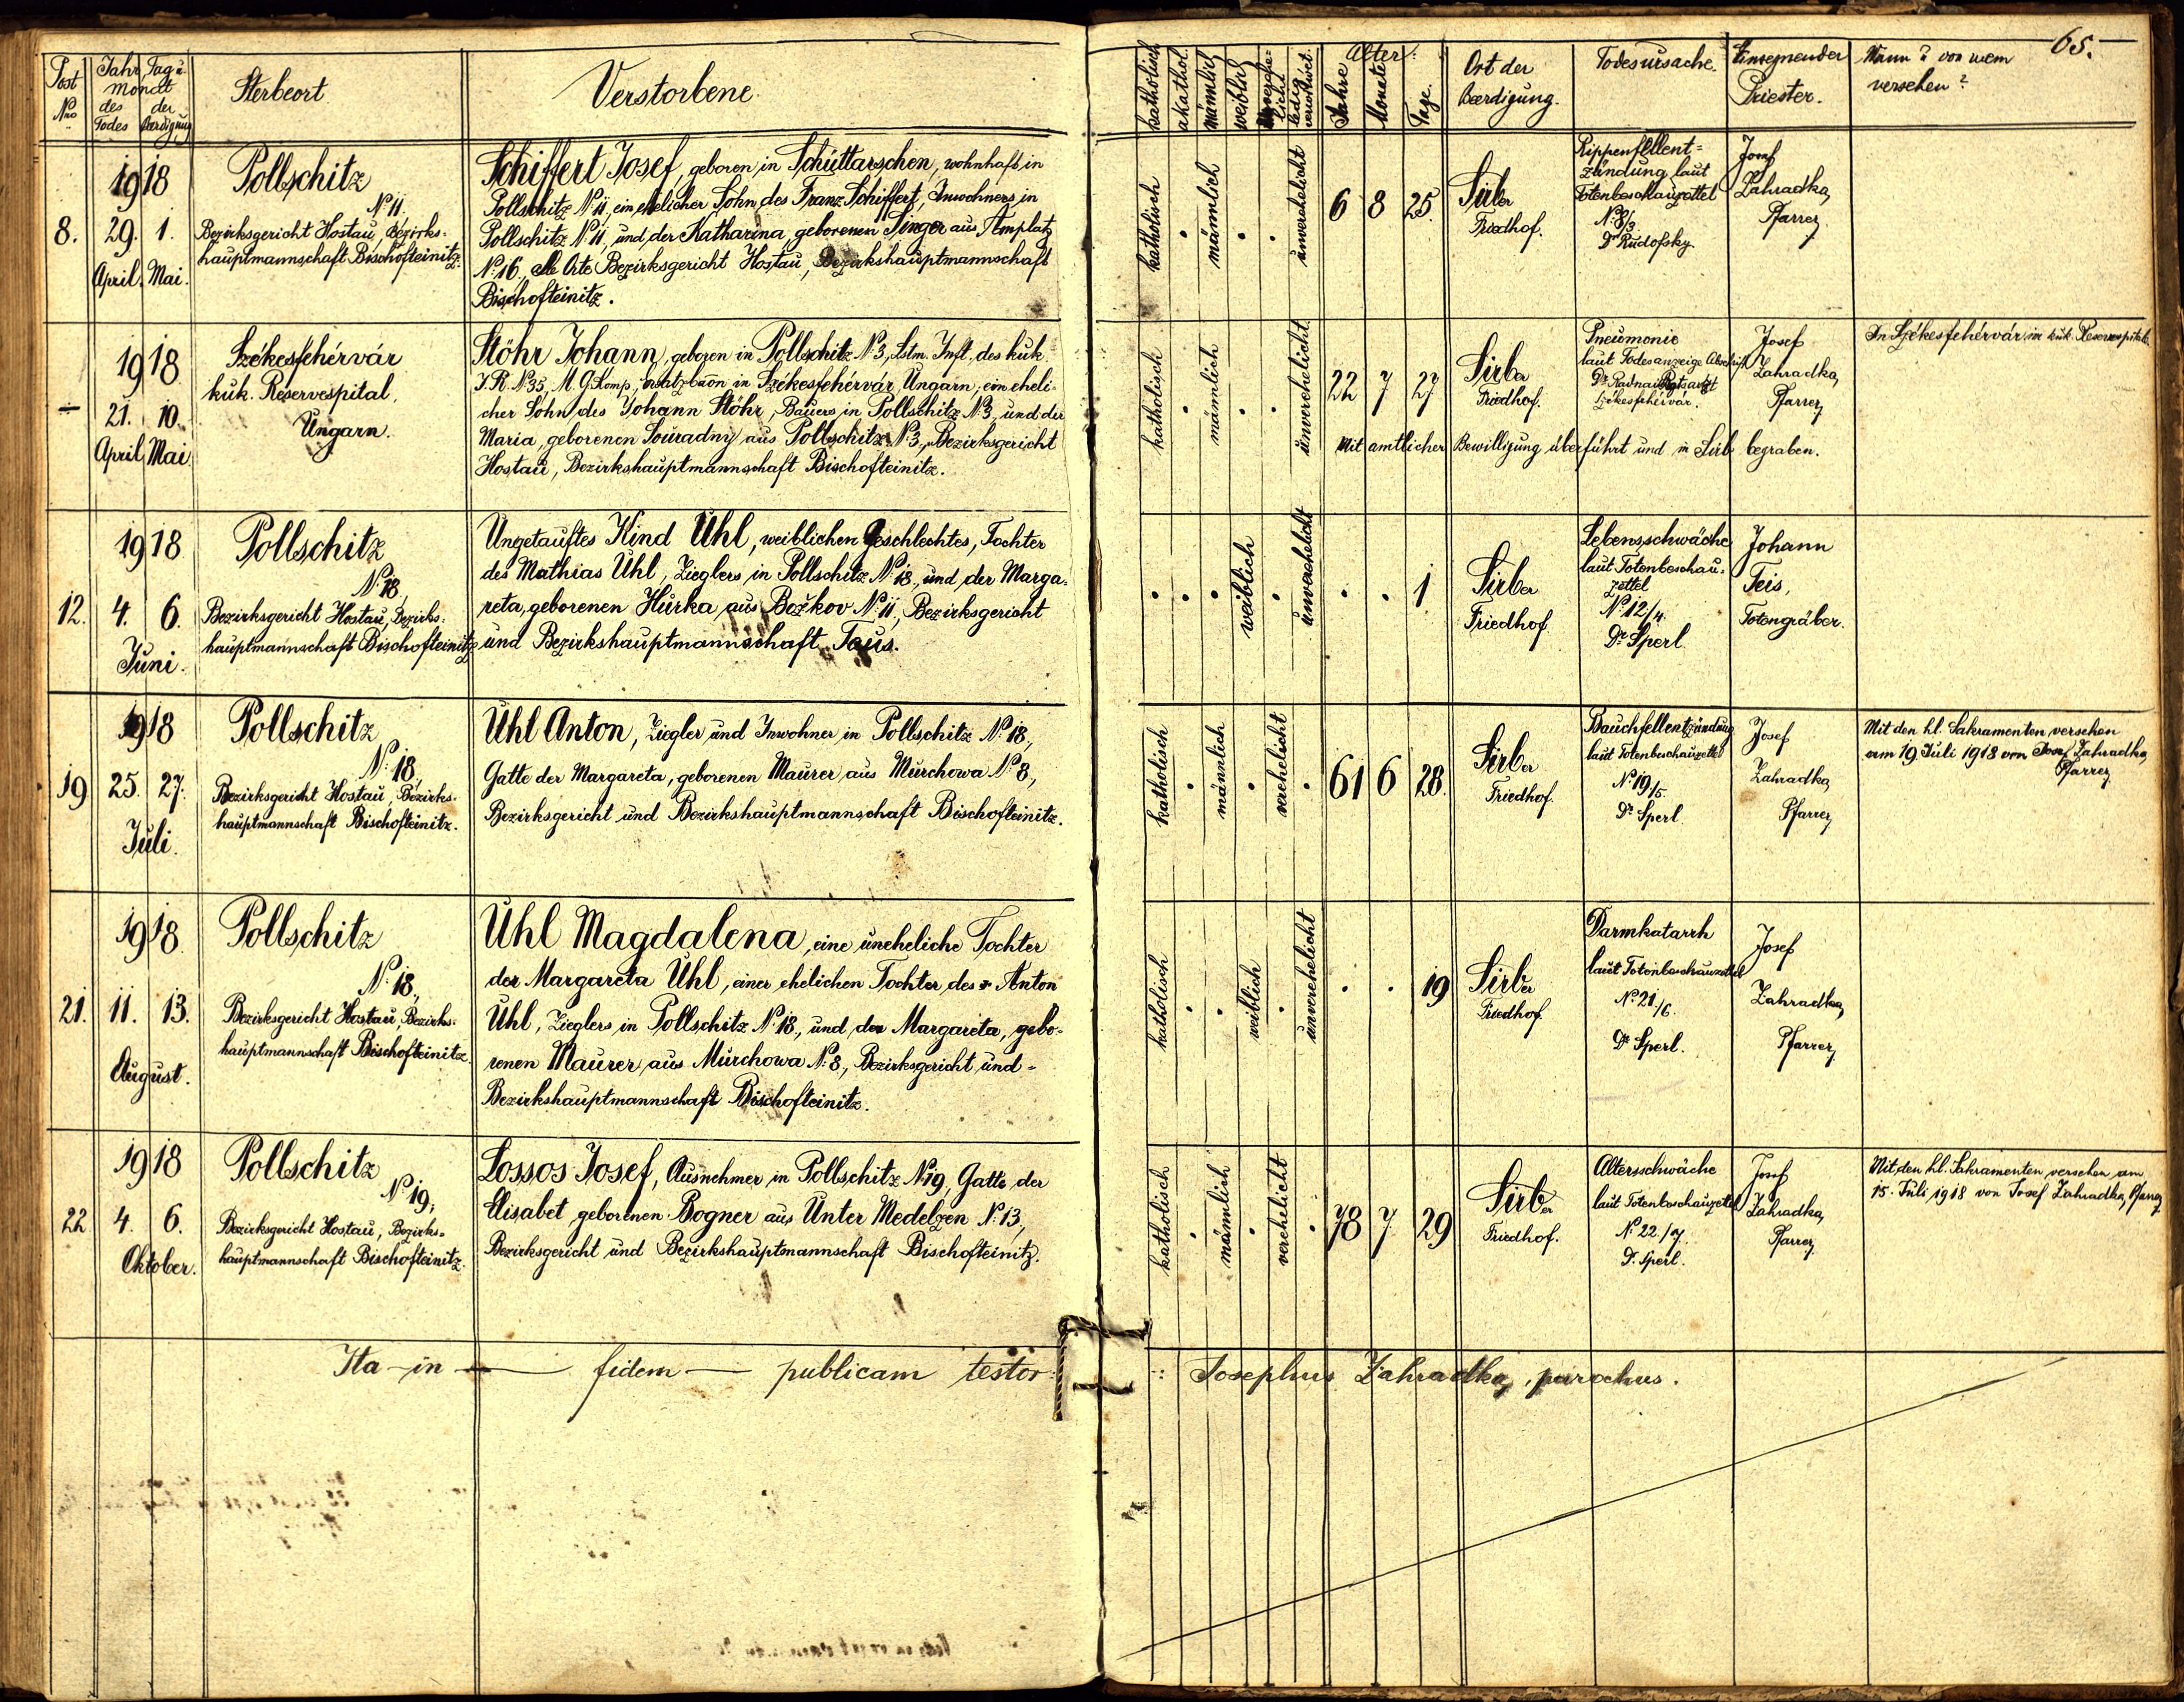 65.
Post Nro
Jahr
Tag u.
Monat
des Todes
der Beerdigung
Sterbeort
Verstorbene
katholisch
akathol.
männlich
weiblich
ledig
Alter:
Jahre
Monate
Tage.
Ort der
Beerdigung.
Todesursache.
Einsegnender
Priester.
Wann? von wem
versehen?
8.
1918
29. 1.
April. Mai.
Pollschitz
No 11.
Bezirksgericht Hostau, Bezirks-
hauptmannschaft Bischofteinitz.
Schiffert Josef, geboren in Schüttarschen, wohnhaft in
Pollschitz No 11, ein ehelicher Sohn des Franz Schiffert, Inwohners in
Pollschitz No 11, und der Katharina geborenen Singer aus Amplatz
No 16, alle Orte Bezirksgericht Hostau, Bezirkshauptmannschaft
Bischofteinitz.
katholisch
männlich
unverehelicht
6 8 25.
Sirber
Friedhof.
Rippenfellent=
zündung, laut
Totenbeschauzettel
No 8/3
Dr Rudofsky.
Josef
Zahradka,
Pfarrer
—
1918
21. 10.
April Mai
Székesfehérvár
kuk. Reservespital,
Ungarn.
Stöhr Johann, geboren in Pollschitz No 3, Lstm. Inft. des kuk.
I.R. No 35, M.G. Komp., Ersatzbaon in Székesfehérvár, Ungarn, ein eheli-
cher Sohn des Johann Stöhr, Bauers in Pollschitz No 3, und der
Maria, geborenen Souradny aus Pollschitz No 3, Bezirksgericht
Hostau, Bezirkshauptmannschaft Bischofteinitz.
katholisch
männlich
unverehelicht.
22 7 27
Sirber
Friedhof.
Pneumonie
laut Todesanzeige Abschrift
Dr Radnai Rgtsarzt
Székesfehérvár.
Josef
Zahradka,
Pfarrer
In Székesfehérvár im kuk. Reservespitale.
Mit amtlicher Bewilligung überführt und in Sirb begraben.
12.
1918
4. 6.
Juni.
Pollschitz
No 18,
Bezirksgericht Hostau, Bezirks-
hauptmannschaft Bischofteinitz
Ungetauftes Kind Uhl, weiblichen Geschlechtes, Tochter
des Mathias Uhl, Zieglers in Pollschitz No 18, und der Marga-
reta, geborenen Hurka aus Božkov No 11, Bezirksgericht
und Bezirkshauptmannschaft Taus.
weiblich
unverehelicht
1
Sirber
Friedhof
Lebensschwäche
laut Totenbeschau-
zettel
No 12/4.
Dr Sperl
Johann
Teis,
Totengräber.
19
1918
25. 27.
Juli.
Pollschitz
No 18,
Bezirksgericht Hostau, Bezirks-
hauptmannschaft Bischofteinitz.
Uhl Anton, Ziegler und Inwohner in Pollschitz No 18,
Gatte der Margareta, geborenen Maurer aus Murchowa No 8,
Bezirksgericht und Bezirkshauptmannschaft Bischofteinitz.
katholisch
männlich
verehelicht
61 6 28.
Sirber
Friedhof.
Bauchfellentzündung
laut Totenbeschauzettel
No 19/5.
Dr Sperl
Josef
Zahradka,
Pfarrer
Mit den hl. Sakramenten versehen
am 19. Juli 1918 von Josef Zahradka,
Pfarrer
21.
1918
11. 13.
August.
Pollschitz
No 18,
Bezirksgericht Hostau, Bezirks-
hauptmannschaft Bischofteinitz.
Uhl Magdalena, eine uneheliche Tochter
der Margareta Uhl, einer ehelichen Tochter des Anton
Uhl, Zieglers in Pollschitz No 18, und der Margareta, gebo-
renen Maurer aus Murchowa No 8, Bezirksgericht und
Bezirkshauptmannschaft Bischofteinitz.
katholisch
weiblich
unverehelicht
19
Sirber
Friedhof
Darmkatarrh
laut Totenbeschauzettel
No 21./6.
Dr Sperl.
Josef
Zahradka,
Pfarrer
22
1918
4. 6.
Oktober.
Pollschitz
No 19,
Bezirksgericht Hostau, Bezirks-
hauptmannschaft Bischofteinitz.
Lossos Josef, Ausnehmer in Pollschitz No 19, Gatte der
Elisabet geborenen Bogner aus Unter Medelzen No 13,
Bezirksgericht und Bezirkshauptmannschaft Bischofteinitz.
katholisch
männlich
verehelicht
78 7 29
Sirber
Friedhof.
Altersschwäche
laut Totenbeschauzettel
No 22/7.
Dr Sperl.
Josef
Zahradka,
Pfarrer
Mit den hl. Sakramenten versehen am
15. Juli 1918 von Josef Zahradka, Pfarrer
Ita — in — fidem — publicam testor: Josephus Zahradka, parochus.